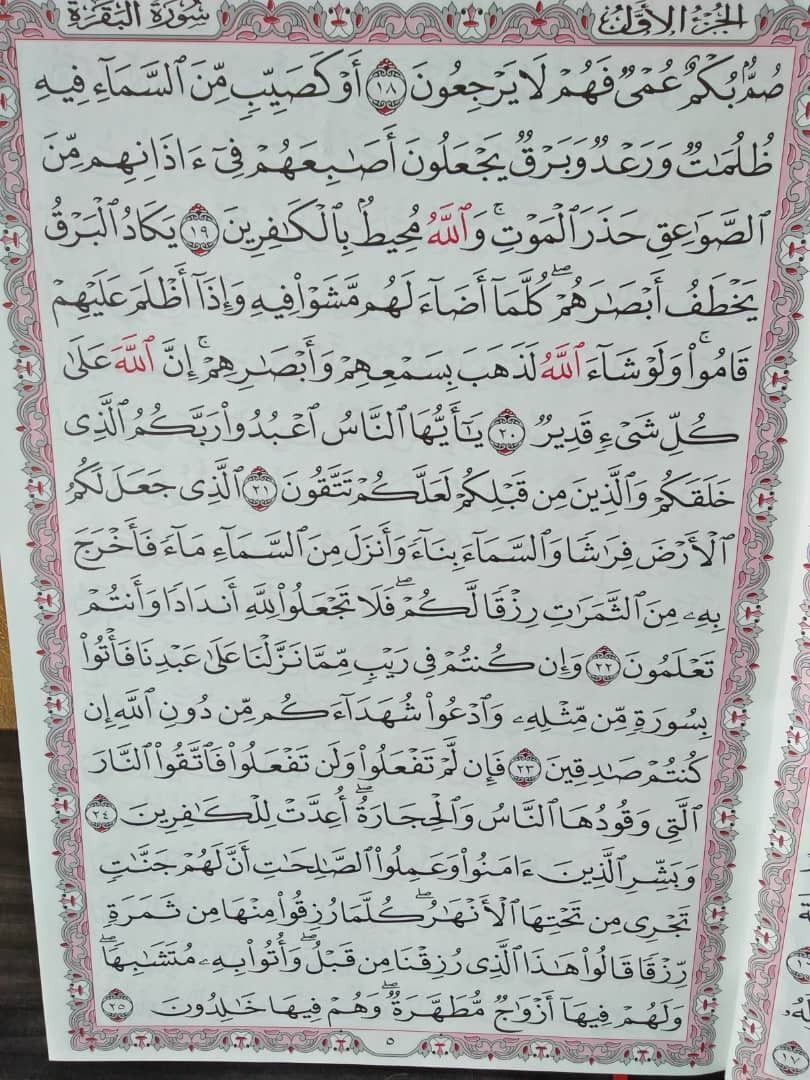 الجزء الأول
سورة البقرة
صُمٌّۢ بُكْمٌ عُمْىٌ فَهُمْ لَا يَرْجِعُونَ ١٨ أَوْ كَصَيِّبٍ مِّنَ ٱلسَّمَآءِ فِيهِ
ظُلُمَـٰتٌ وَرَعْدٌ وَبَرْقٌ يَجْعَلُونَ أَصَـٰبِعَهُمْ فِىٓ ءَاذَانِهِم مِّنَ
ٱلصَّوَٰعِقِ حَذَرَ ٱلْمَوْتِ ۚ وَٱللَّهُ مُحِيطٌۢ بِٱلْكَـٰفِرِينَ ١٩ يَكَادُ ٱلْبَرْقُ
يَخْطَفُ أَبْصَـٰرَهُمْ ۖ كُلَّمَآ أَضَآءَ لَهُم مَّشَوْا۟ فِيهِ وَإِذَآ أَظْلَمَ عَلَيْهِمْ
قَامُوا۟ ۚ وَلَوْ شَآءَ ٱللَّهُ لَذَهَبَ بِسَمْعِهِمْ وَأَبْصَـٰرِهِمْ ۚ إِنَّ ٱللَّهَ عَلَىٰ
كُلِّ شَىْءٍ قَدِيرٌ ٢٠ يَـٰٓأَيُّهَا ٱلنَّاسُ ٱعْبُدُوا۟ رَبَّكُمُ ٱلَّذِى
خَلَقَكُمْ وَٱلَّذِينَ مِن قَبْلِكُمْ لَعَلَّكُمْ تَتَّقُونَ ٢١ ٱلَّذِى جَعَلَ لَكُمُ
ٱلْأَرْضَ فِرَٰشًا وَٱلسَّمَآءَ بِنَآءً وَأَنزَلَ مِنَ ٱلسَّمَآءِ مَآءً فَأَخْرَجَ
بِهِۦ مِنَ ٱلثَّمَرَٰتِ رِزْقًا لَّكُمْ ۖ فَلَا تَجْعَلُوا۟ لِلَّهِ أَندَادًا وَأَنتُمْ
تَعْلَمُونَ ٢٢ وَإِن كُنتُمْ فِى رَيْبٍ مِّمَّا نَزَّلْنَا عَلَىٰ عَبْدِنَا فَأْتُوا۟
بِسُورَةٍ مِّن مِّثْلِهِۦ وَٱدْعُوا۟ شُهَدَآءَكُم مِّن دُونِ ٱللَّهِ إِن
كُنتُمْ صَـٰدِقِينَ ٢٣ فَإِن لَّمْ تَفْعَلُوا۟ وَلَن تَفْعَلُوا۟ فَٱتَّقُوا۟ ٱلنَّارَ
ٱلَّتِى وَقُودُهَا ٱلنَّاسُ وَٱلْحِجَارَةُ ۖ أُعِدَّتْ لِلْكَـٰفِرِينَ ٢٤
وَبَشِّرِ ٱلَّذِينَ ءَامَنُوا۟ وَعَمِلُوا۟ ٱلصَّـٰلِحَـٰتِ أَنَّ لَهُمْ جَنَّـٰتٍ
تَجْرِى مِن تَحْتِهَا ٱلْأَنْهَـٰرُ ۖ كُلَّمَا رُزِقُوا۟ مِنْهَا مِن ثَمَرَةٍ
رِّزْقًا قَالُوا۟ هَـٰذَا ٱلَّذِى رُزِقْنَا مِن قَبْلُ ۖ وَأُتُوا۟ بِهِۦ مُتَشَـٰبِهًا ۖ
وَلَهُمْ فِيهَآ أَزْوَٰجٌ مُّطَهَّرَةٌ ۖ وَهُمْ فِيهَا خَـٰلِدُونَ ٢٥
٥
١٧